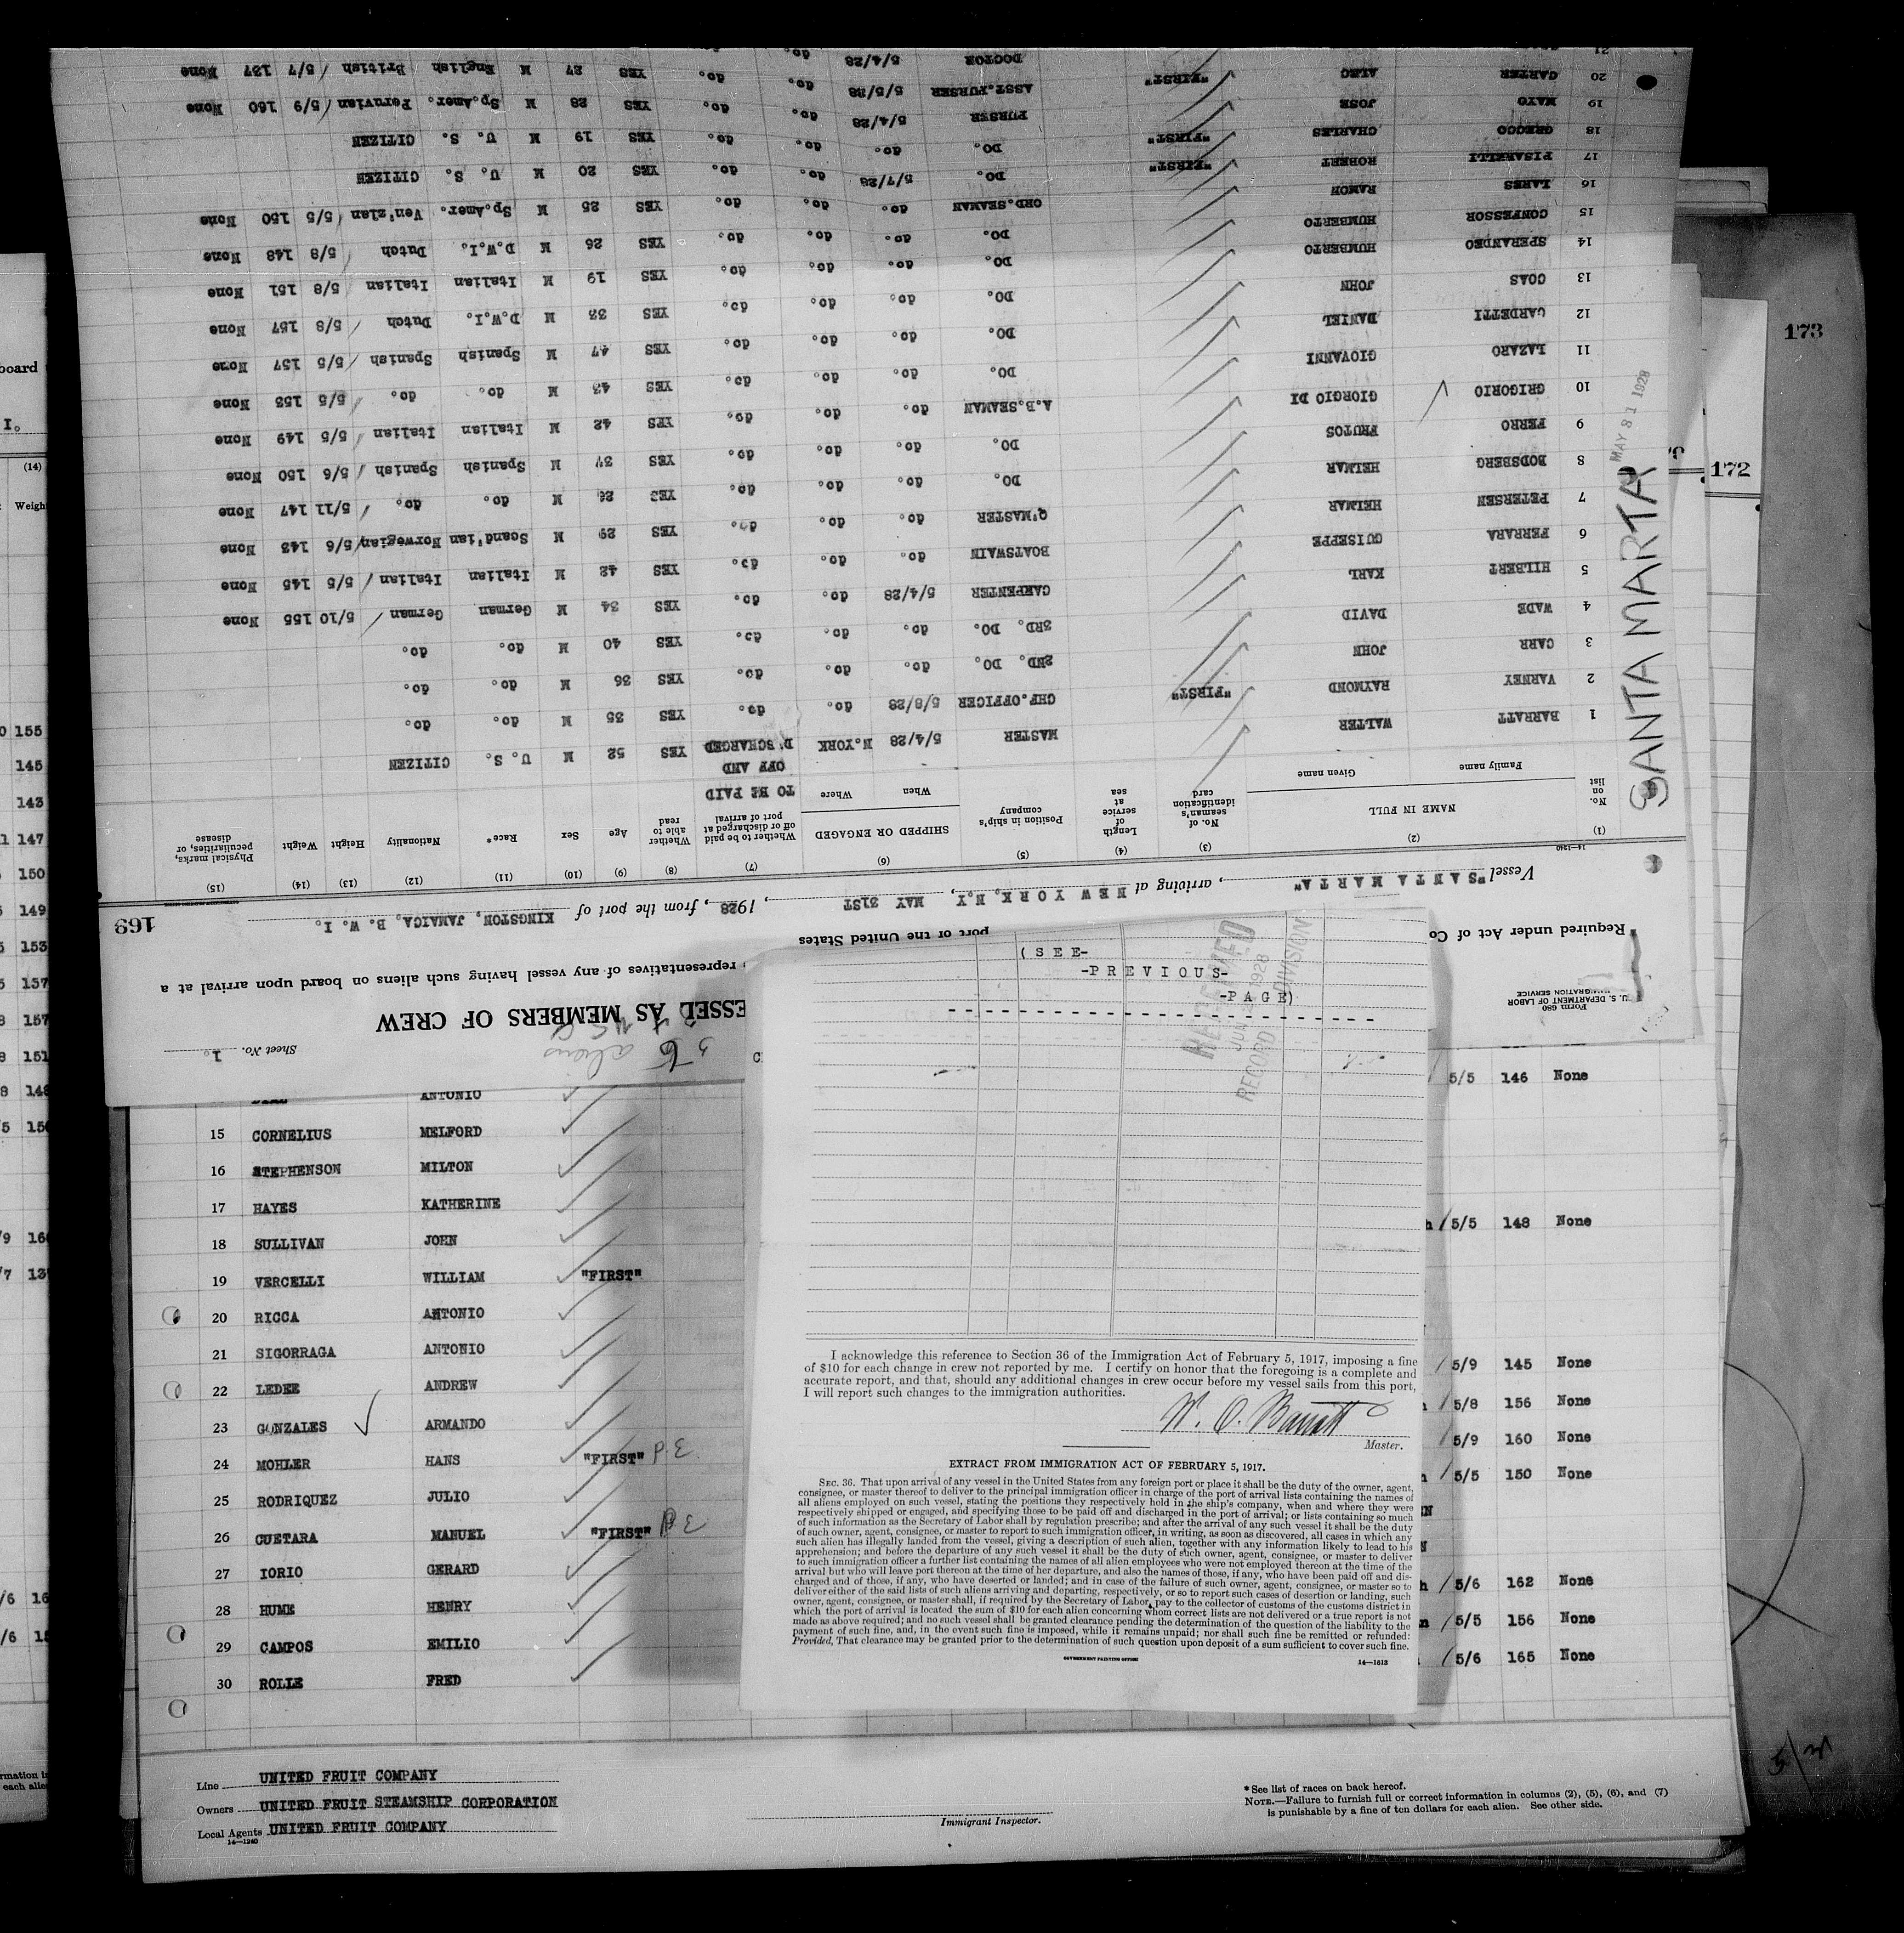 169
Form 680
U. S. DEPARTMENT OF LABOR
IMMIGRATION SERVICE
Sheet No. 1.
ESSED AS MEMBERS OF CREW
Required under Act of Co
representatives of any vessel having such aliens on board upon arrival at a
port of the United States
Vessel "SANTA MARTA", arriving at NEW YORK, N.Y. MAY 31ST, 1928, from the port of KINGSTON, JAMAICA, B. W. I.
14-1240
(1) (2) (3) (4) (5) (6) (7) (8) (9) (10) (11) (12) (13) (14) (15)
No. on list NAME IN FULL Family name Given name No. of seaman's identification card Length of service at sea Position in ship's company SHIPPED OR ENGAGED When Where Whether to be paid off or discharged at port of arrival Whether able to read Age Sex Race* Nationality Height Weight Physical marks, peculiarities, or disease
TO BE PAID OFF AND
1 BARRATT WALTER MASTER 5/4/28 N.YORK D'SCHARGED YES 52 M U. S. CITIZEN
2 VARNEY RAYMOND "FIRST" CHF.OFFICER 5/8/28 do. do. YES 35 M do. do.
3 CARR JOHN 2ND. DO. do. do. do. YES 36 M do. do.
4 WADE DAVID 3RD. DO. do. do. do. YES 40 M do. do.
5 HILBERT KARL CARPENTER 5/4/28 do. do. YES 34 M German German 5/10 155 None
6 FERRARA GUISEPPE BOATSWAIN do. do. do. YES 42 M Italian Italian 5/5 145 None
7 PETERSEN HELMAR Q'MASTER do. do. do. YES 29 M Scand'ian Norwegian 5/6 143 None
8 BODSBERG HELMAR DO. do. do. do. YES 26 M do. do. 5/11 147 None
9 FERRO FRUTOS DO. do. do. do. YES 37 M Spanish Spanish 5/6 150 None
10 GRIGORIO GIORGIO DI A.B.SEAMAN do. do. do. YES 42 M Italian Italian 5/5 149 None
11 LAZARO GIOVANNI DO. do. do. do. YES 43 M do. do. 5/5 153 None
12 GARDETTI DANIEL DO. do. do. do. YES 47 M Spanish Spanish 5/5 157 None
13 COAS JOHN DO. do. do. do. YES 33 M D.W.I. Dutch 5/8 157 None
14 SPERANDEO HUMBERTO DO. do. do. do. YES 19 M Italian Italian 5/8 151 None
15 CONFESSOR HUMBERTO DO. do. do. do. YES 26 M D.W.I. Dutch 5/8 148 None
16 LARES RAMON ORD.SEAMAN do. do. do. YES 25 M Sp.Amer. Ven'zlan 5/5 150 None
17 PISARELLI ROBERT "FIRST" DO. 5/7/28 do. do. YES 20 M U. S. CITIZEN
18 GRECCO CHARLES "FIRST" DO. do. do. do. YES 19 M U. S. CITIZEN
19 MAYO JOSE PURSER 5/4/28 do. do. YES 28 M Sp.Amer. Peruvian 5/9 160 None
20 CARTER ALEC "FIRST" ASST.PURSER 5/5/28 do. do. YES 27 M English British 5/7 137 None
21 DOCTOR 5/4/28 do. do.
SANTA MARTA
MAY 31 1928
172
173
(SEE-
-PREVIOUS-
-PAGE)
RECEIVED
JUN 1928
RECORD DIVISION
I acknowledge this reference to Section 36 of the Immigration Act of February 5, 1917, imposing a fine
of $10 for each change in crew not reported by me. I certify on honor that the foregoing is a complete and
accurate report, and that, should any additional changes in crew occur before my vessel sails from this port,
I will report such changes to the immigration authorities.
W. O. Barratt
Master.
EXTRACT FROM IMMIGRATION ACT OF FEBRUARY 5, 1917.
SEC. 36. That upon arrival of any vessel in the United States from any foreign port or place it shall be the duty of the owner, agent,
consignee, or master thereof to deliver to the principal immigration officer in charge of the port of arrival lists containing the names of
all aliens employed on such vessel, stating the positions they respectively hold in the ship's company, when and where they were
respectively shipped or engaged, and specifying those to be paid off and discharged in the port of arrival; or lists containing so much
of such information as the Secretary of Labor shall by regulation prescribe; and after the arrival of any such vessel it shall be the duty
of such owner, agent, consignee, or master to report to such immigration officer, in writing, as soon as discovered, all cases in which any
such alien has illegally landed from the vessel, giving a description of such alien, together with any information likely to lead to his
apprehension; and before the departure of any such vessel it shall be the duty of such owner, agent, consignee, or master to deliver
to such immigration officer a further list containing the names of all alien employees who were not employed thereon at the time of the
arrival but who will leave port thereon at the time of her departure, and also the names of those, if any, who have been paid off and dis-
charged and of those, if any, who have deserted or landed; and in case of the failure of such owner, agent, consignee, or master so to
deliver either of the said lists of such aliens arriving and departing, respectively, or so to report such cases of desertion or landing, such
owner, agent, consignee, or master shall, if required by the Secretary of Labor, pay to the collector of customs of the customs district in
which the port of arrival is located the sum of $10 for each alien concerning whom correct lists are not delivered or a true report is not
made as above required; and no such vessel shall be granted clearance pending the determination of the question of the liability to the
payment of such fine, and, in the event such fine is imposed, while it remains unpaid; nor shall such fine be remitted or refunded:
Provided, That clearance may be granted prior to the determination of such question upon deposit of a sum sufficient to cover such fine.
GOVERNMENT PRINTING OFFICE 14-1613
ANTONIO 5/5 146 None
15 CORNELIUS MELFORD
16 STEPHENSON MILTON
17 HAYES KATHERINE
18 SULLIVAN JOHN 5/5 148 None
19 VERCELLI WILLIAM "FIRST"
20 RICCA ANTONIO
21 SIGORRAGA ANTONIO
22 LEDEE ANDREW 5/9 145 None
23 GONZALES ARMANDO 5/8 156 None
24 MOHLER HANS "FIRST" 5/9 160 None
25 RODRIQUEZ JULIO 5/5 150 None
26 GUETARA MANUEL "FIRST"
27 IORIO GERARD
28 HUME HENRY 5/6 162 None
29 CAMPOS EMILIO 5/5 156 None
30 ROLLE FRED 5/6 165 None
Line UNITED FRUIT COMPANY
Owners UNITED FRUIT STEAMSHIP CORPORATION
Local Agents UNITED FRUIT COMPANY
14-1240
Immigrant Inspector.
*See list of races on back hereof.
NOTE.—Failure to furnish full or correct information in columns (2), (5), (6), and (7)
is punishable by a fine of ten dollars for each alien. See other side.